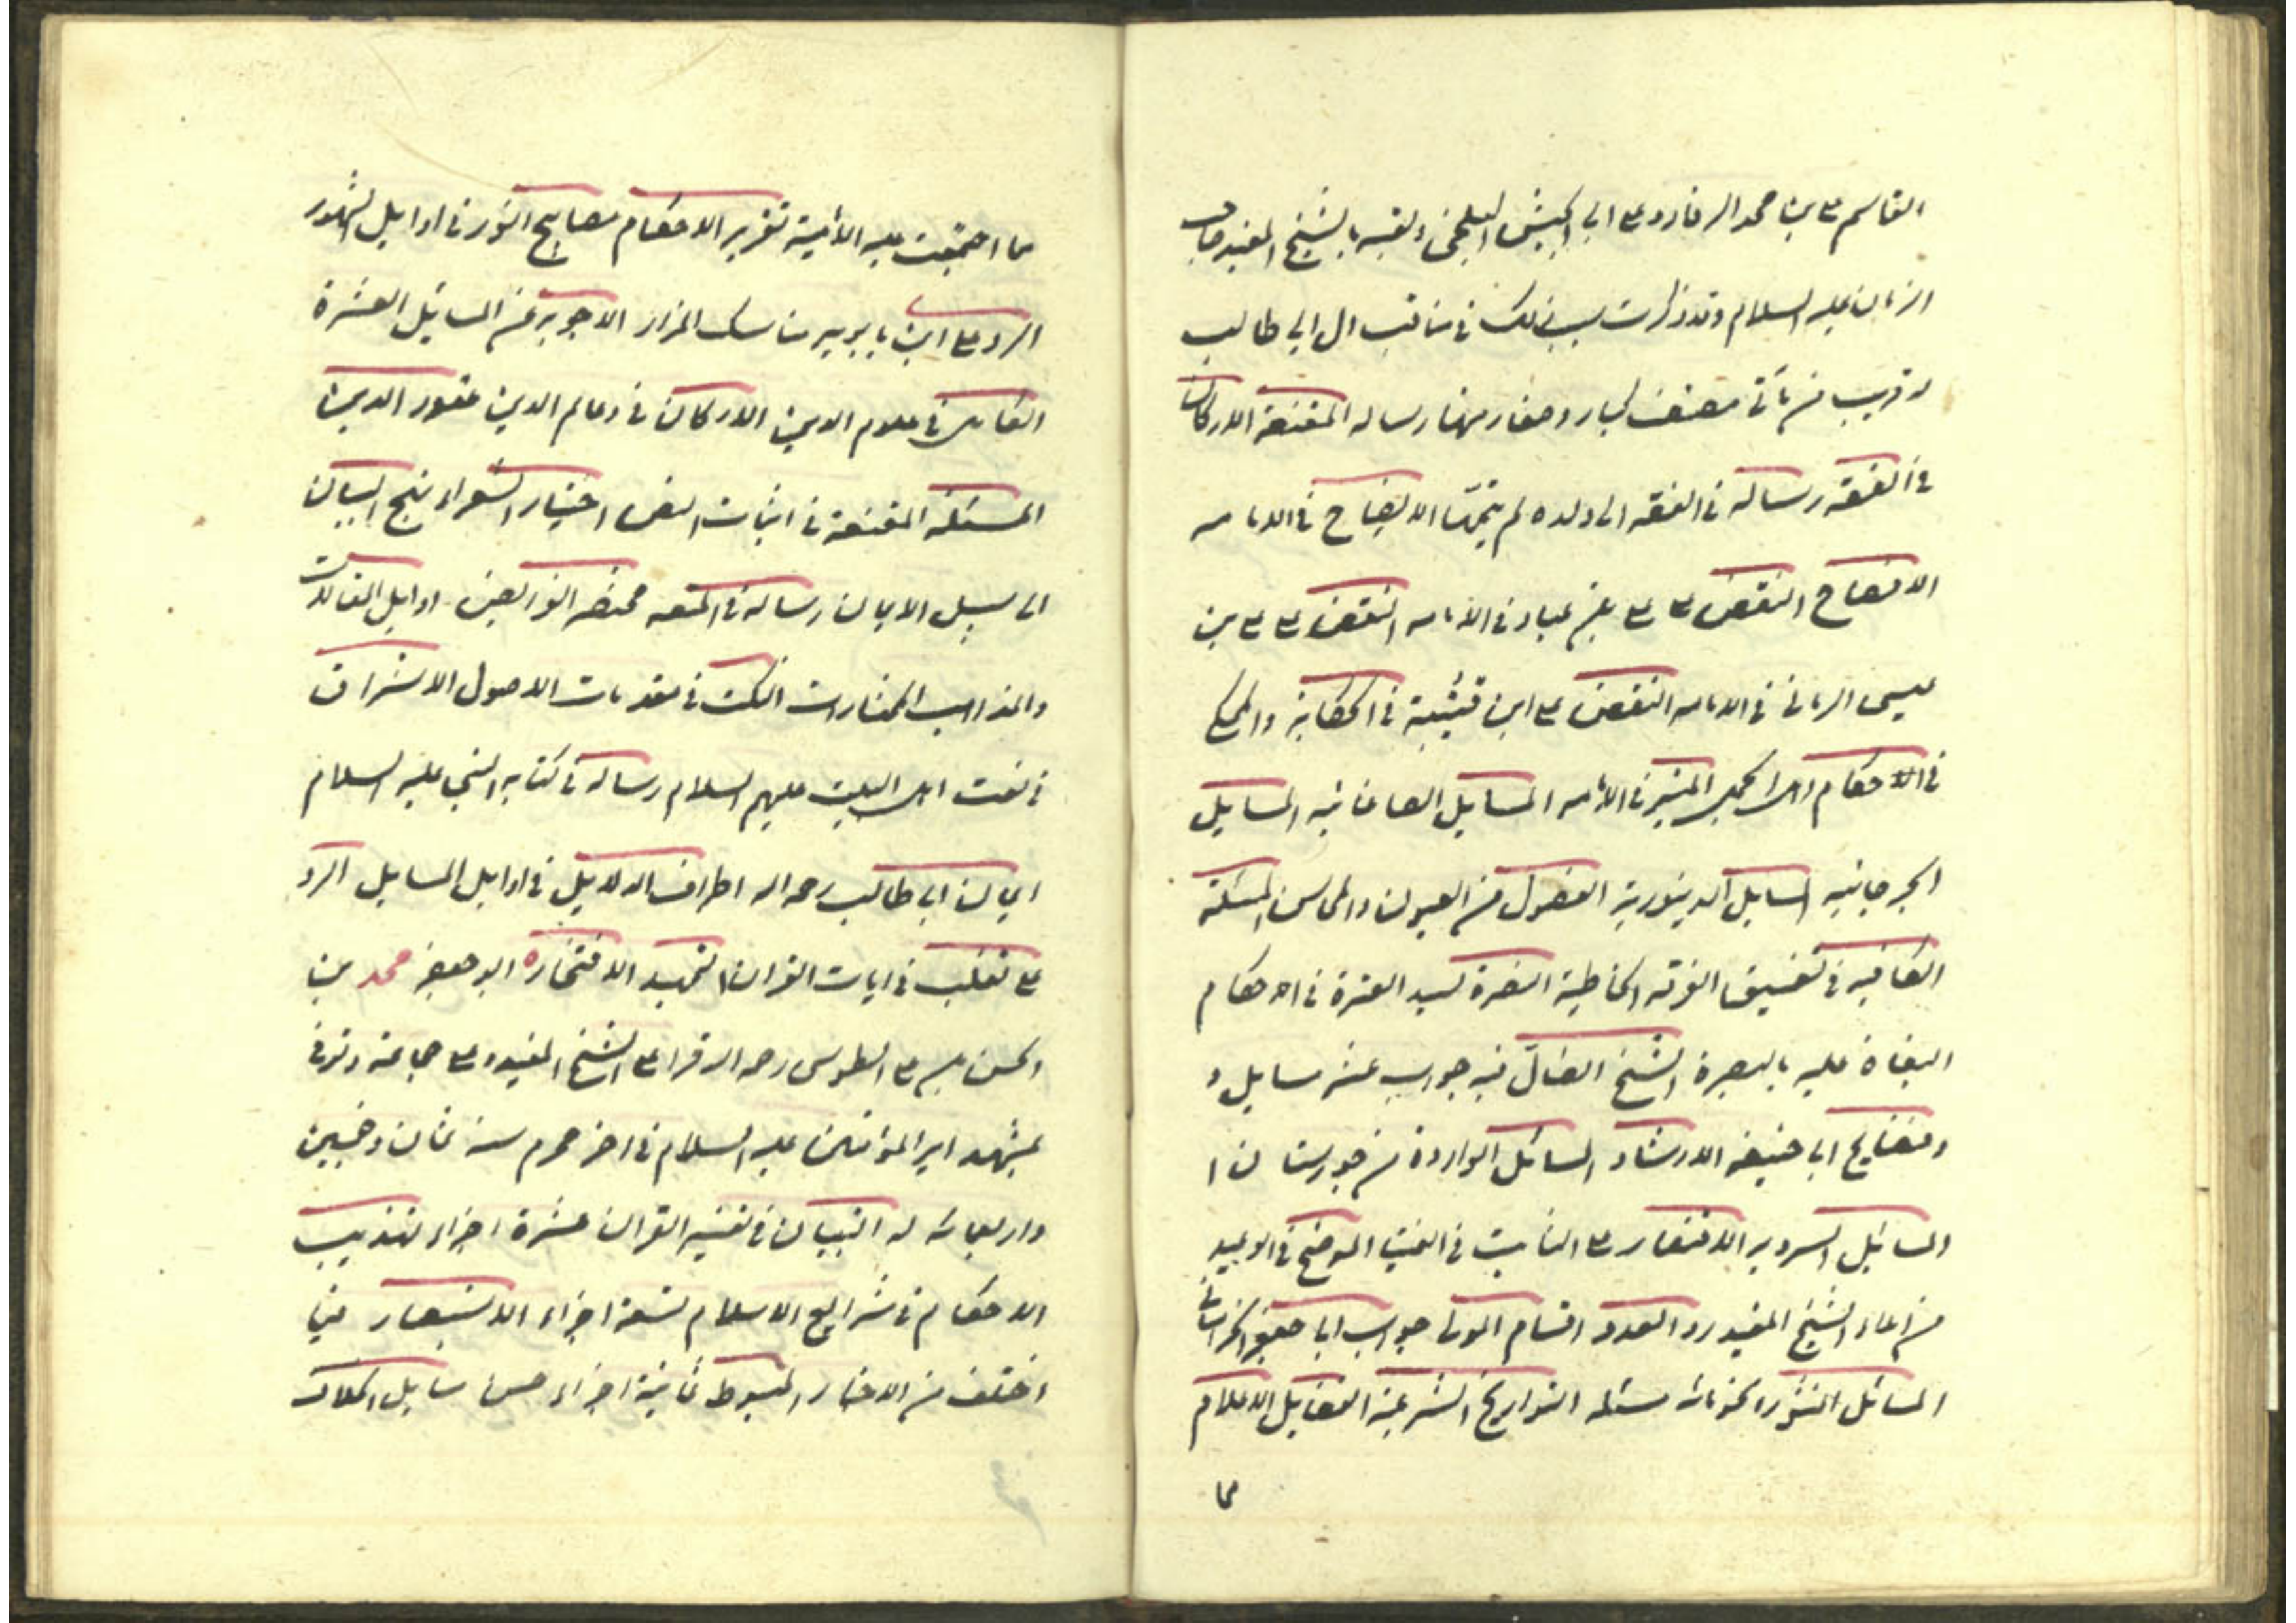 القاسم علي بن محمد الرفا و علي ابي الجيش البلخي ولقبه بالشيخ المفيد صاحب
الزمان عليه السلام وقد ذكرت سبب ذلك في مناقب ال ابي طالب
له قريب من مأتي مصنف كبار وصغار منها رساله المقنعة الاركان
في الفقه رساله في الفقه الى ولده لم يتمها الايضاح في الامامه
الافصاح النقض علي علي بن عباد في الامامه النقض علي علي بن
عيسى الرماني في الامامه النقض علي ابن قتيبة في الحكاية والمحكي
في الاحكام اهل الجمل المنير في الامامه المسايل الصاغانيه المسايل
الجرجانيه المسايل الدينورية الفصول من العيون والمحاسن المسئلة
الكافيه في تفسيق الفرقه الخاطية النصرة لسيد العترة في احكام
البغاة عليه بالبصرة الشيخ الضال فيه جواب عشر مسايل و
وفضايح ابي حنيفه الارشاد المسائل الواردة من خوزستان ا
المسائل السرويه الانتصار علي الثابت في الفتيا الموضح في الوعيد
من املاء الشيخ المفيد رد العدد اقسام المولى جواب ابا جعفر الخراساني
المسائل المنثوره نحو مائه مسئله التواريخ الشرعية الفضايل الاعلام
ما
ما اجتمعت عليه الأمية تقرير الاحكام مصابيح النور في اوايل الشهور
الرد علي ابن بابويه مناسك المزار الاجوبه عن المسايل العشرة
الكامل في علوم الدين الاركان في دعايم الدين عقود الدين
المسئله المقنعة في اثبات النص اختيار الشعراء نهج البيان
الى سبيل الايمان رساله في المتعه مختصر الفرايض اوايل المقالات
والمذاهب المختارات النكت في مقدمات الاصول الاشراف
في نعت اهل البيت عليهم السلام رساله في كتابه النبي عليه السلام
ايمان ابي طالب رحمه الله اطراف الدلايل في اوايل المسايل الرد
علي ثعلب في ايات القران التمهيد الافتخاره ابو جعفر محمد بن
الحسن بن علي الطوسي رحمه الله قرا علي الشيخ المفيد و علي جماعة وتوفي
بمشهد امير المؤمنين عليه السلام في اخر محرم سنه ثمان وخمسين
واربعمائه له التبيان في تفسير القران عشرة اجزاء تهذيب
الاحكام في شرايع الاسلام تسعة اجزاء الاستبصار فيما
اختلف من الاخبار المبسوط ثمانية اجزاء حسن مسايل الخلاف